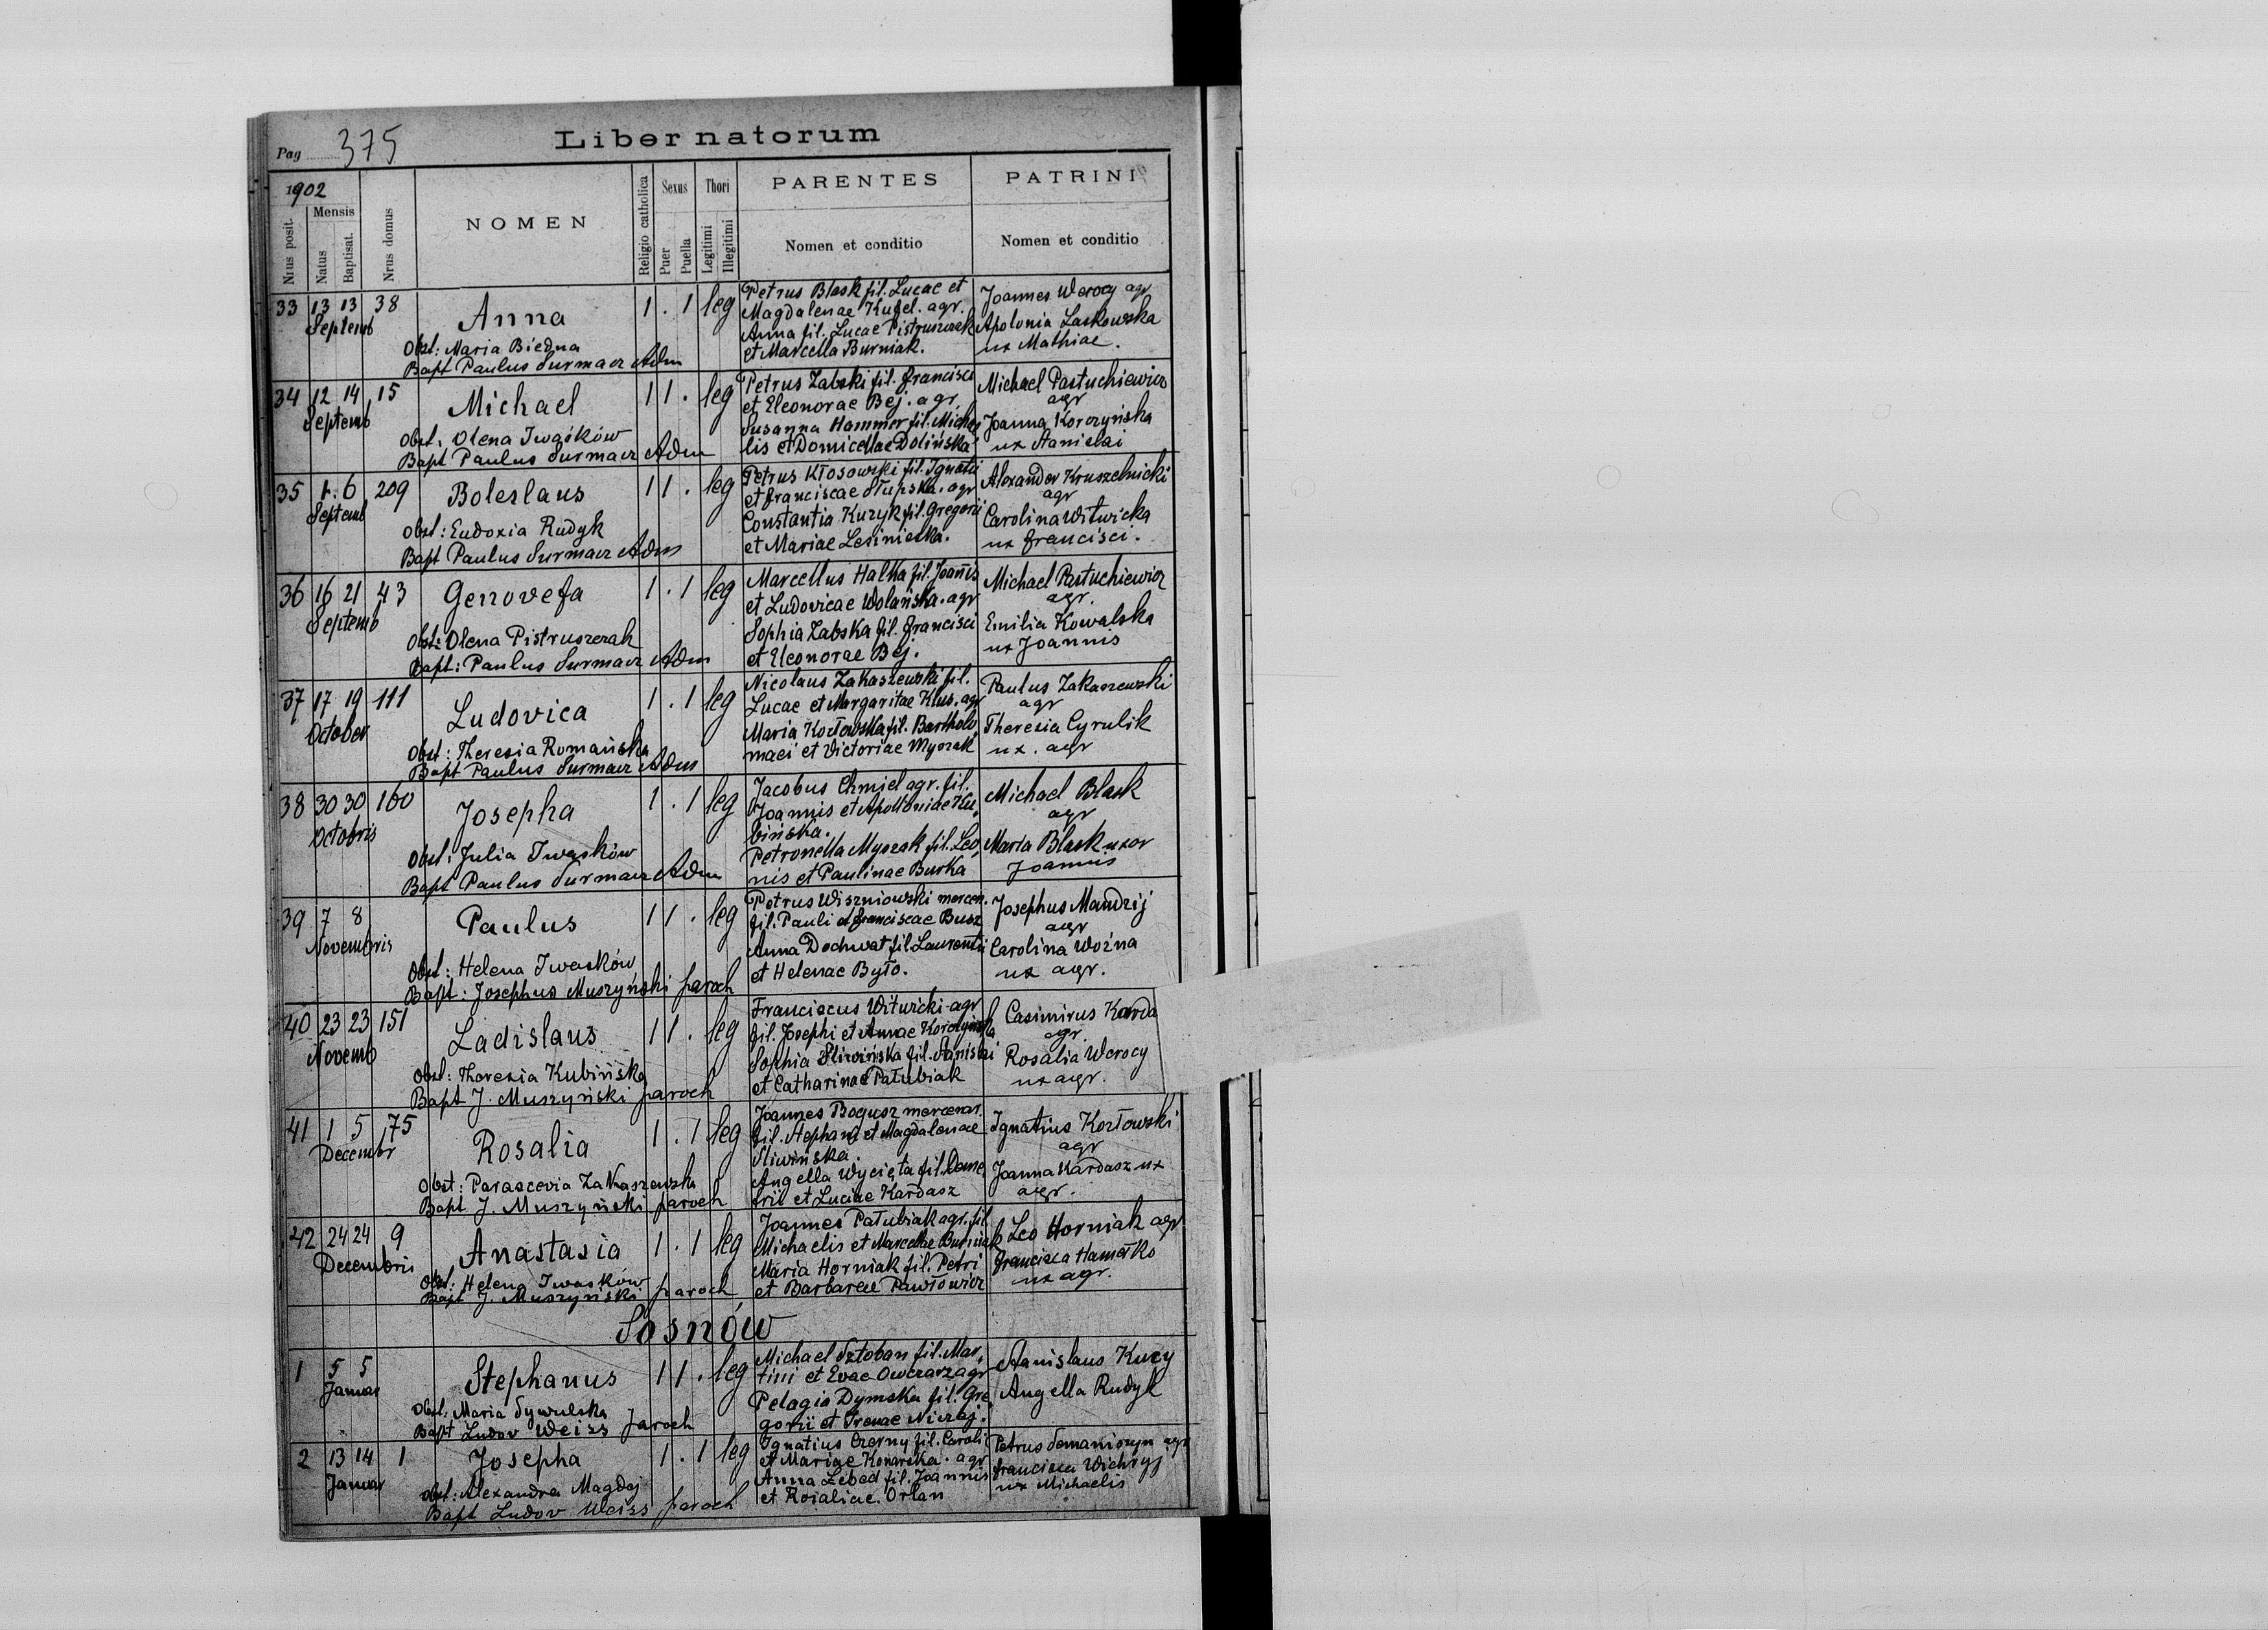 Pag 375
Liber natorum
1902
Nrus posit.
Mensis
Natus
Baptisat.
Nrus domus
NOMEN
Religio catholica
Sexus
Puer
Puella
Thori
Legitimi
Illegitimi
PARENTES
Nomen et conditio
PATRINI
Nomen et conditio
33 13 13 38 Anna 1 . 1 leg
Septemb
Obst: Maria Biedna
Bapt Paulus Surmacz Adm
Petrus Blask fil. Lucae et
Magdalenae Kufel. agr.
Anna fil. Lucae Pistruszczak
et Marcella Burniak.
Joannes Werocy agr
Apolonia Laskowska
ux Mathiae.
34 12 14 15 Michael 1 1 . leg
Septemb
Obst: Olena Iwaśków
Bapt Paulus Surmacz Adm
Petrus Zabski fil. Francisci
et Eleonorae Bej. agr.
Susanna Hammer fil. Michae
lis et Domicellae Dolińska
Michael Pastuchiewicz
agr
Joanna Korczyńska
ux Stanislai
35 1. 6 209 Boleslaus 1 1 . leg
Septemb
Obst: Eudoxia Rudyk
Bapt Paulus Surmacz Adm
Petrus Kłosowski fil. Ignatii
et Franciscae Słupska. agr
Constantia Kuzyk fil. Gregorii
et Mariae Lesiniecka.
Alexander Kruszelnicki
agr
Carolina Witwicka
ux Francisci.
36 16 21 43 Genovefa 1 . 1 leg
Septemb
Obst: Olena Pistruszczak
Bapt: Paulus Surmacz Adm
Marcellus Halka fil. Joannis
et Ludovicae Wolańska. agr
Sophia Zabska fil. Francisci
et Eleonorae Bej.
Michael Pastuchiewicz
agr.
Emilia Kowalska
ux Joannis
37 17 19 111 Ludovica 1 . 1 leg
October
Obst: Theresia Romańska
Bapt Paulus Surmacz Adm
Nicolaus Zakaszewski fil.
Lucae et Margaritae Klus. agr
Maria Kozłowska fil. Bartholo
maei et Victoriae Myszak
Paulus Zakaszewski
agr
Theresia Cyrulik
ux. agr
38 30 30 160 Josepha 1 . 1 leg
Octobris
Obst: Julia Iwasków
Bapt Paulus Surmacz Adm
Jacobus Chmiel agr. fil.
Joannis et Apolloniae Ku
bińska.
Petronella Myszak fil. Leo
nis et Paulinae Burka
Michael Blask
agr
Maria Blask uxor
Joannis
39 7 8 Paulus 1 1 . leg
Novembris
Obst: Helena Iwasków
Bapt: Josephus Muszyński paroch
Petrus Wiszniowski mercen.
fil. Pauli et Franciscae Busz
Anna Dochwat fil. Laurentii
et Helenae Było.
Josephus Mandzij
agr
Carolina Woźna
ux agr.
40 23 23 151 Ladislaus 1 1 . leg
Novemb
Obst: Theresia Kubińska
Bapt J. Muszyński paroch
Franciscus Witwicki agr
fil. Josephi et Annae Korczyńska
Sophia Sliwińska fil. Stanislai
et Catharinae Patubiak
Casimirus Karda
agr.
Rosalia Werocy
ux agr.
41 1 5 75 Rosalia 1 . 1 leg
Decembr
Obst: Parascevia Zakaszewska
Bapt J. Muszyński paroch
Joannes Bogusz mercenar.
fil. Stephani et Magdalenae
Sliwińska.
Angella Wycięta fil. Deme
trii et Luciae Kardasz
Ignatius Kozłowski
agr
Joanna Kardasz ux
agr.
42 24 24 9 Anastasia 1 . 1 leg
Decembris
Obst: Helena Iwasków
Bapt J. Muszyński paroch
Joannes Patubiak agr. fil
Michaelis et Marcellae Burniak
Maria Horniak fil. Petri
et Barbarae Pawłowicz
Leo Horniak agr
Francisca Hamerko
ux agr.
Sosnów
1 5 5 Stephanus 1 1 . leg
Januar
Obst: Maria Sywulska
Bapt Ludov Weiss paroch
Michael Sztoban fil. Mar
tini et Evae Owczarz agr
Pelagia Dymska fil. Gre
gorii et Irenae Niczaj.
Stanislaus Kucy
Angella Rudyk
2 13 14 1 Josepha 1 . 1 leg
Januar
Obst: Alexandra Magdej
Bapt Ludov Weiss paroch
Ignatius Czerny fil. Caroli
et Mariae Konarska. agr
Anna Lebed fil. Joannis
et Rosaliae Orlan
Petrus Semaniszyn agr
Francisca Wichryj
ux Michaelis